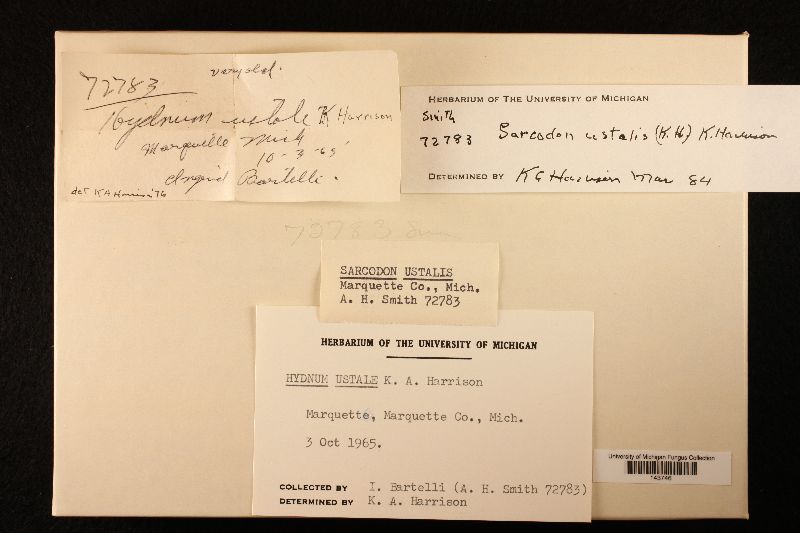 very old.
72783
Hydnum ustale K Harrison
Marquette Mich
10-3-65
Ingrid Bartelli.
det K A Harrison '76
HERBARIUM OF THE UNIVERSITY OF MICHIGAN
Smith
72783 Sarcodon ustalis (K.H.) K. Harrison
DETERMINED BY K A Harrison Mar 84
72783
SARCODON USTALIS
Marquette Co., Mich.
A. H. Smith 72783
HERBARIUM OF THE UNIVERSITY OF MICHIGAN
HYDNUM USTALE K. A. Harrison
Marquette, Marquette Co., Mich.
3 Oct 1965.
COLLECTED BY I. Bartelli (A. H. Smith 72783)
DETERMINED BY K. A. Harrison
University of Michigan Fungus Collection
143746